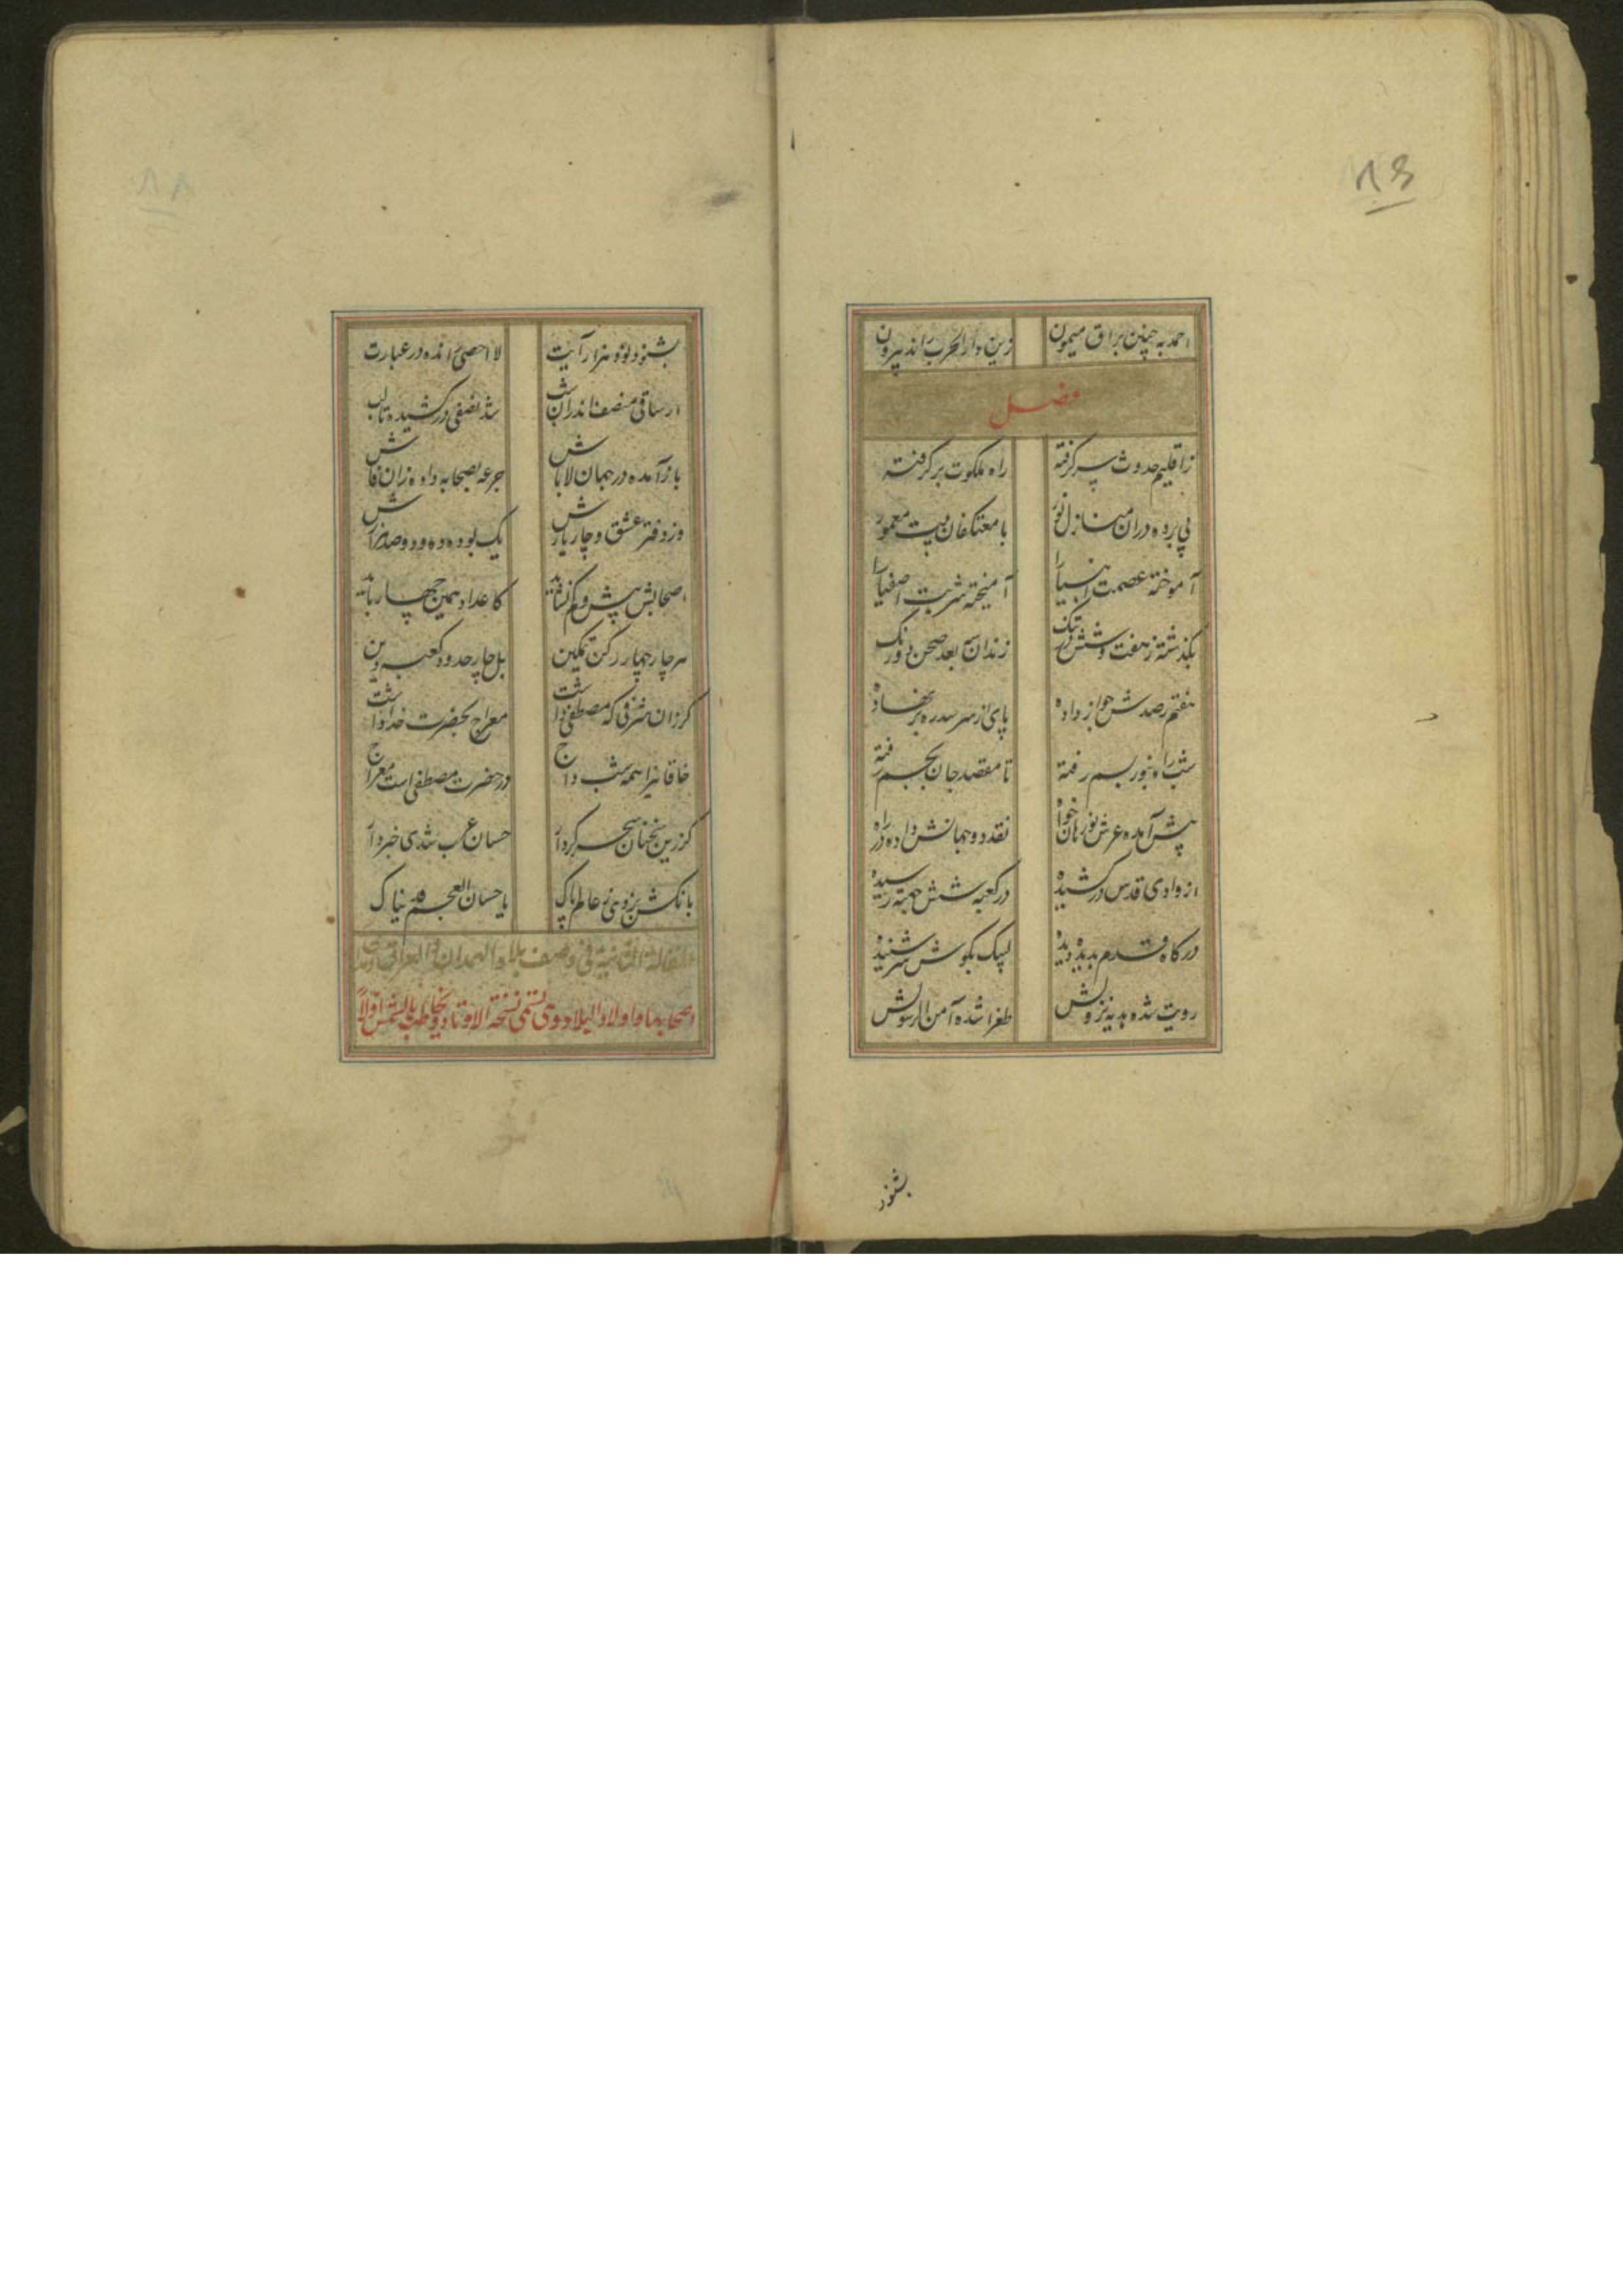 احمد به چنین براق میمون زین دار الحرب راند بیرون
فصل
ز اقلیم حدوث پر گرفته راه ملکوت بر گرفته
پی برده در ان منازل نور با معتکفان بیت معمور
آموخته عصمت انبیا را آمیخته شربت اصفیا را
بگذشته ز هفت و شش در تک زندان سه بعد صحن دو رنک
هفتم رصدش جواز داده پای از سر سدره بر نهاده
شب را و نبور بسم رفته تا مقصد جان بجسم رفته
پیش آمده عرش نور مان خواه نقد دو جهانش داده در راه
از وادی قدس در کشیده در کعبه شش جهة رسیده
درکاه قدم بدیده دیده لبیک بکوش سر شنیده
رویت شده هدیه نزولش طغرا شده آمن الرسولش
بشنود
بشنود نوه هزار آیت لا احصی رانده در عبارت
از ساقی منصف اندران شب شد نصفی در کشیده تا لب
باز آمده در جهان لا باش جرعه بصحابه داده زان فاش
وز دفتر عشق و چار یارش یک بوده و ده و دو صد هزارش
اصحابش بیش و کم نشاند کاعداد همین چهار باند
هر چار چهار رکن تمکین بل چار حدود کعبه دین
کر زان شرفی که مصطفی داشت معراج بحضرت خدا داشت
خاقانی را همه شب داج در حضرت مصطفی است معراج
کز زین سخنان سحر کردار حسان عرب شدی خبردار
بانکش بزدی ز عالم پاک یا حسان العجم فدیناک
المقالة الثانیة فی وصف بلاد الهمدان و العراق و
اصحابها و اولاد البلاد و یسمی نسخة الاوتاد و یخاطب بالشمس اولا